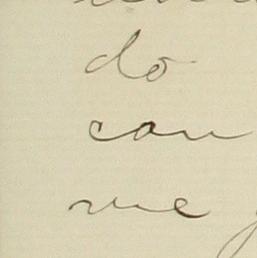 do
can
me